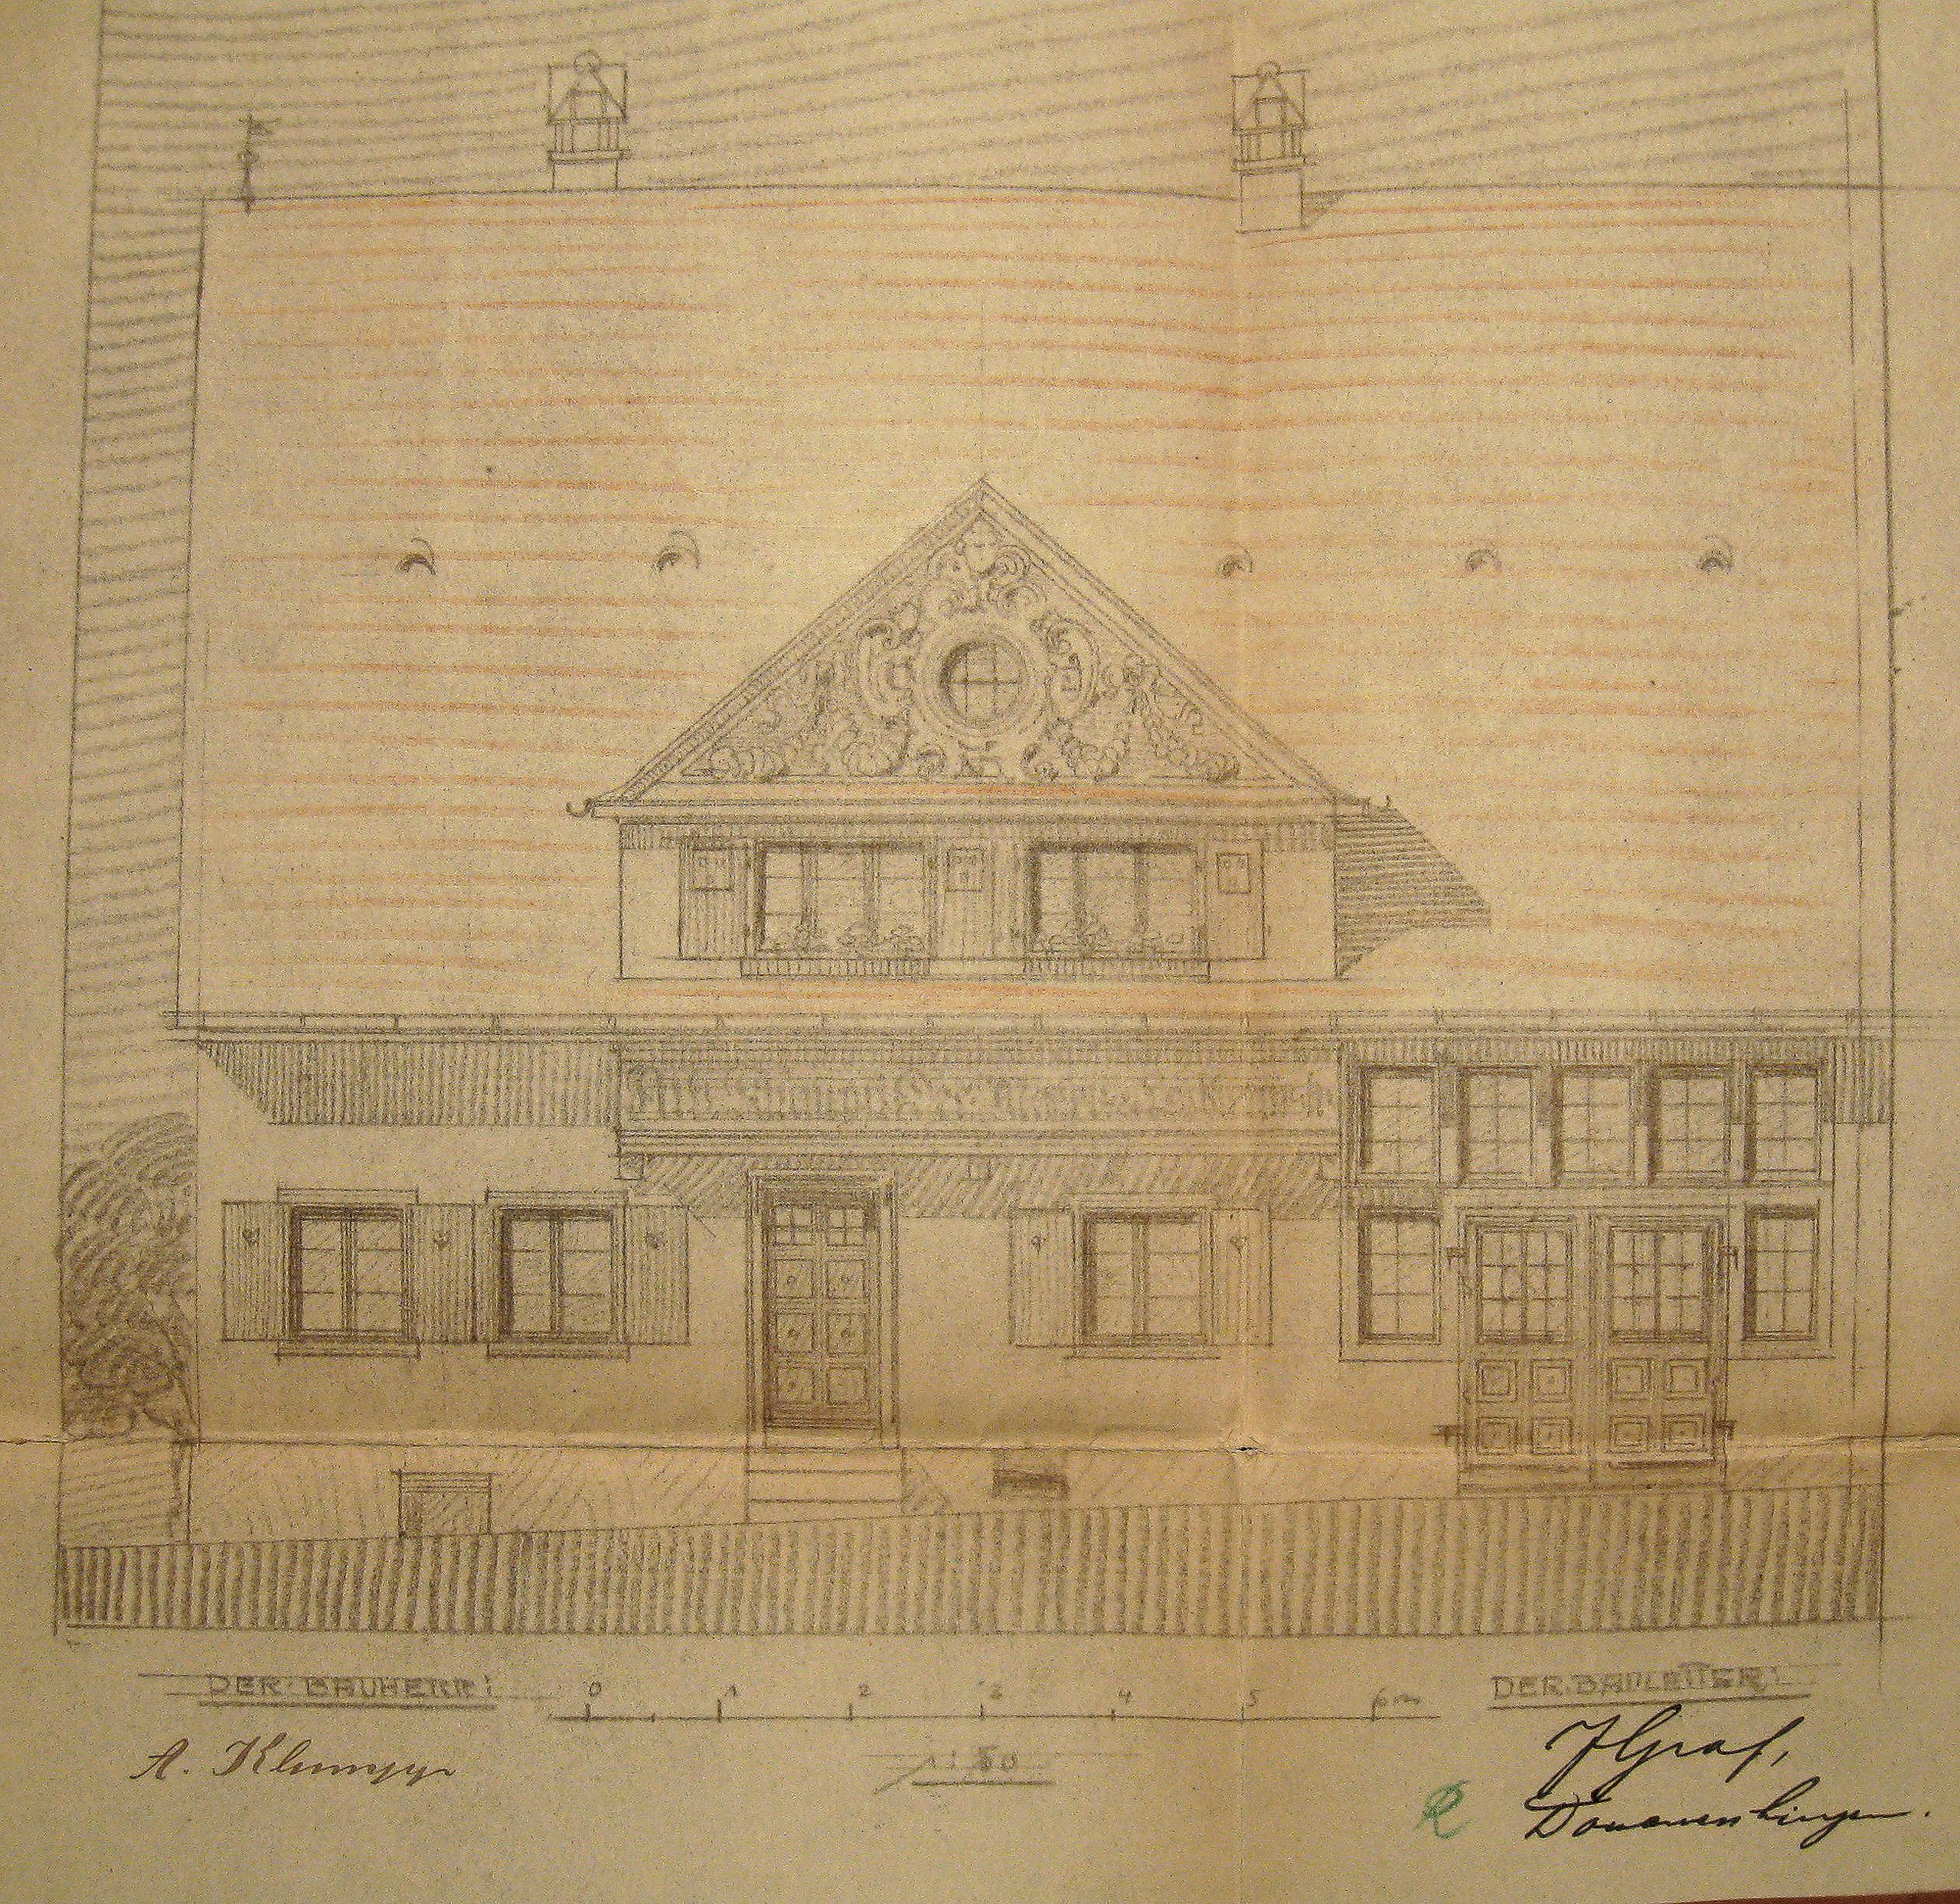 DER BAUHERR:
0 1 2 3 4 5 6 m
DER BAULEITER:
A. Klumpp
1:50
J Graf,
R
Donaueschingen.